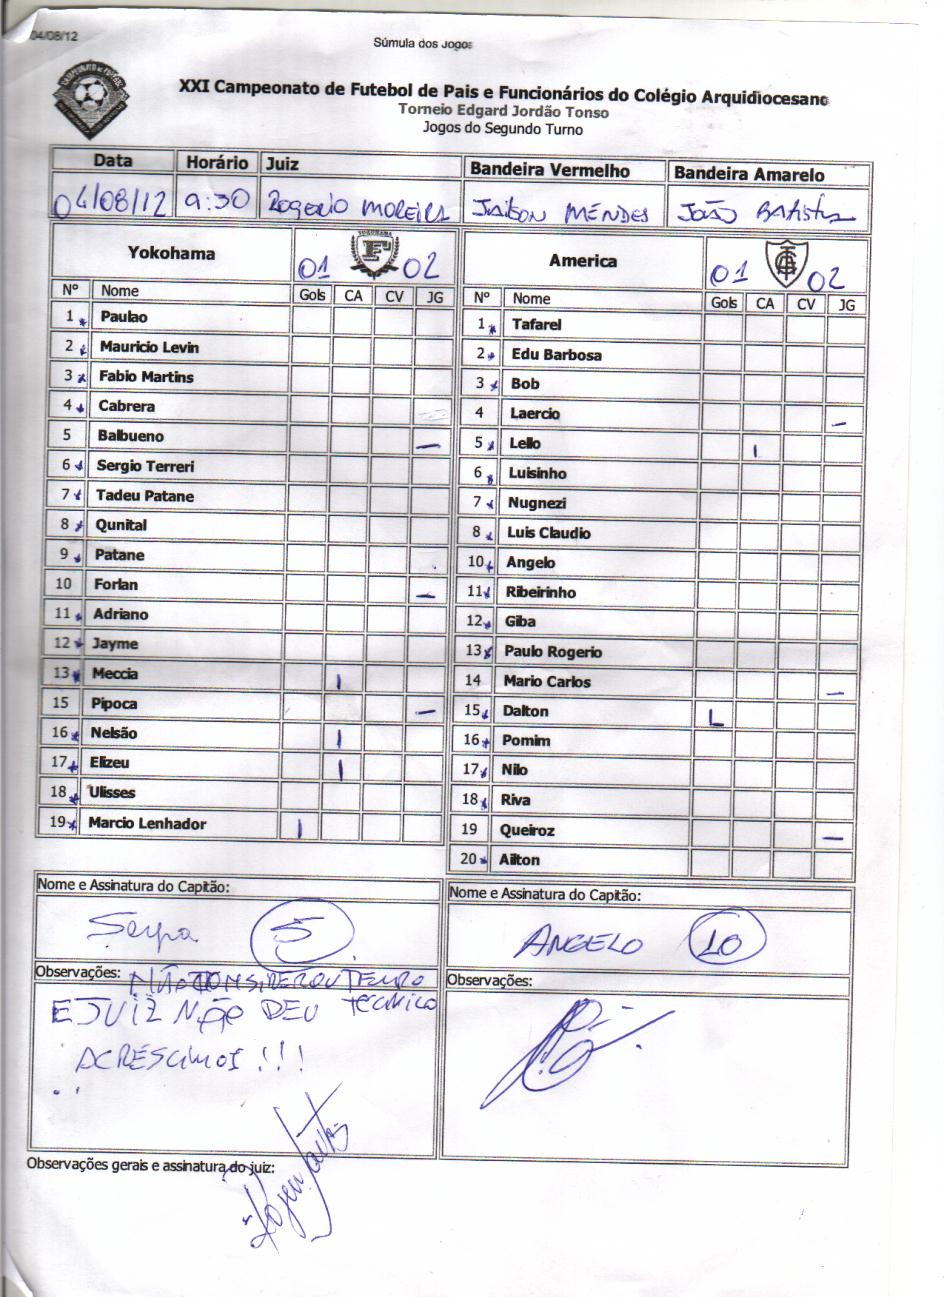 04/08/12
Súmula dos Jogos
XXI Campeonato de Futebol de Pais e Funcionários do Colégio Arquidiocesano
Torneio Edgard Jordão Tonso
Jogos do Segundo Turno
Data Horário Juiz Bandeira Vermelho Bandeira Amarelo
04/08/12 9:30 Rogerio Moreira Jailson Mendes João Batista
Yokohama 01 02 America 01 02
Nº Nome Gols CA CV JG Nº Nome Gols CA CV JG
1 Paulao 1 Tafarel
2 Mauricio Levin 2 Edu Barbosa
3 Fabio Martins 3 Bob
4 Cabrera 4 Laercio —
5 Balbueno — 5 Lello I
6 Sergio Terreri 6 Luisinho
7 Tadeu Patane 7 Nugnezi
8 Qunital 8 Luis Claudio
9 Patane 10 Angelo
10 Forlan — 11 Ribeirinho
11 Adriano 12 Giba
12 Jayme 13 Paulo Rogerio
13 Meccia I 14 Mario Carlos —
15 Pipoca — 15 Dalton L
16 Nelsão I 16 Pomim
17 Elizeu I 17 Nilo
18 Ulisses 18 Riva
19 Marcio Lenhador I 19 Queiroz —
20 Ailton
Nome e Assinatura do Capitão: Nome e Assinatura do Capitão:
Serpa 5 ANGELO 10
Observações: Observações:
NÃO CONSIDEROU TEMPO
E JUIZ NÃO DEU TECNICO
ACRÉSCIMOS!!!
Observações gerais e assinatura do juiz: